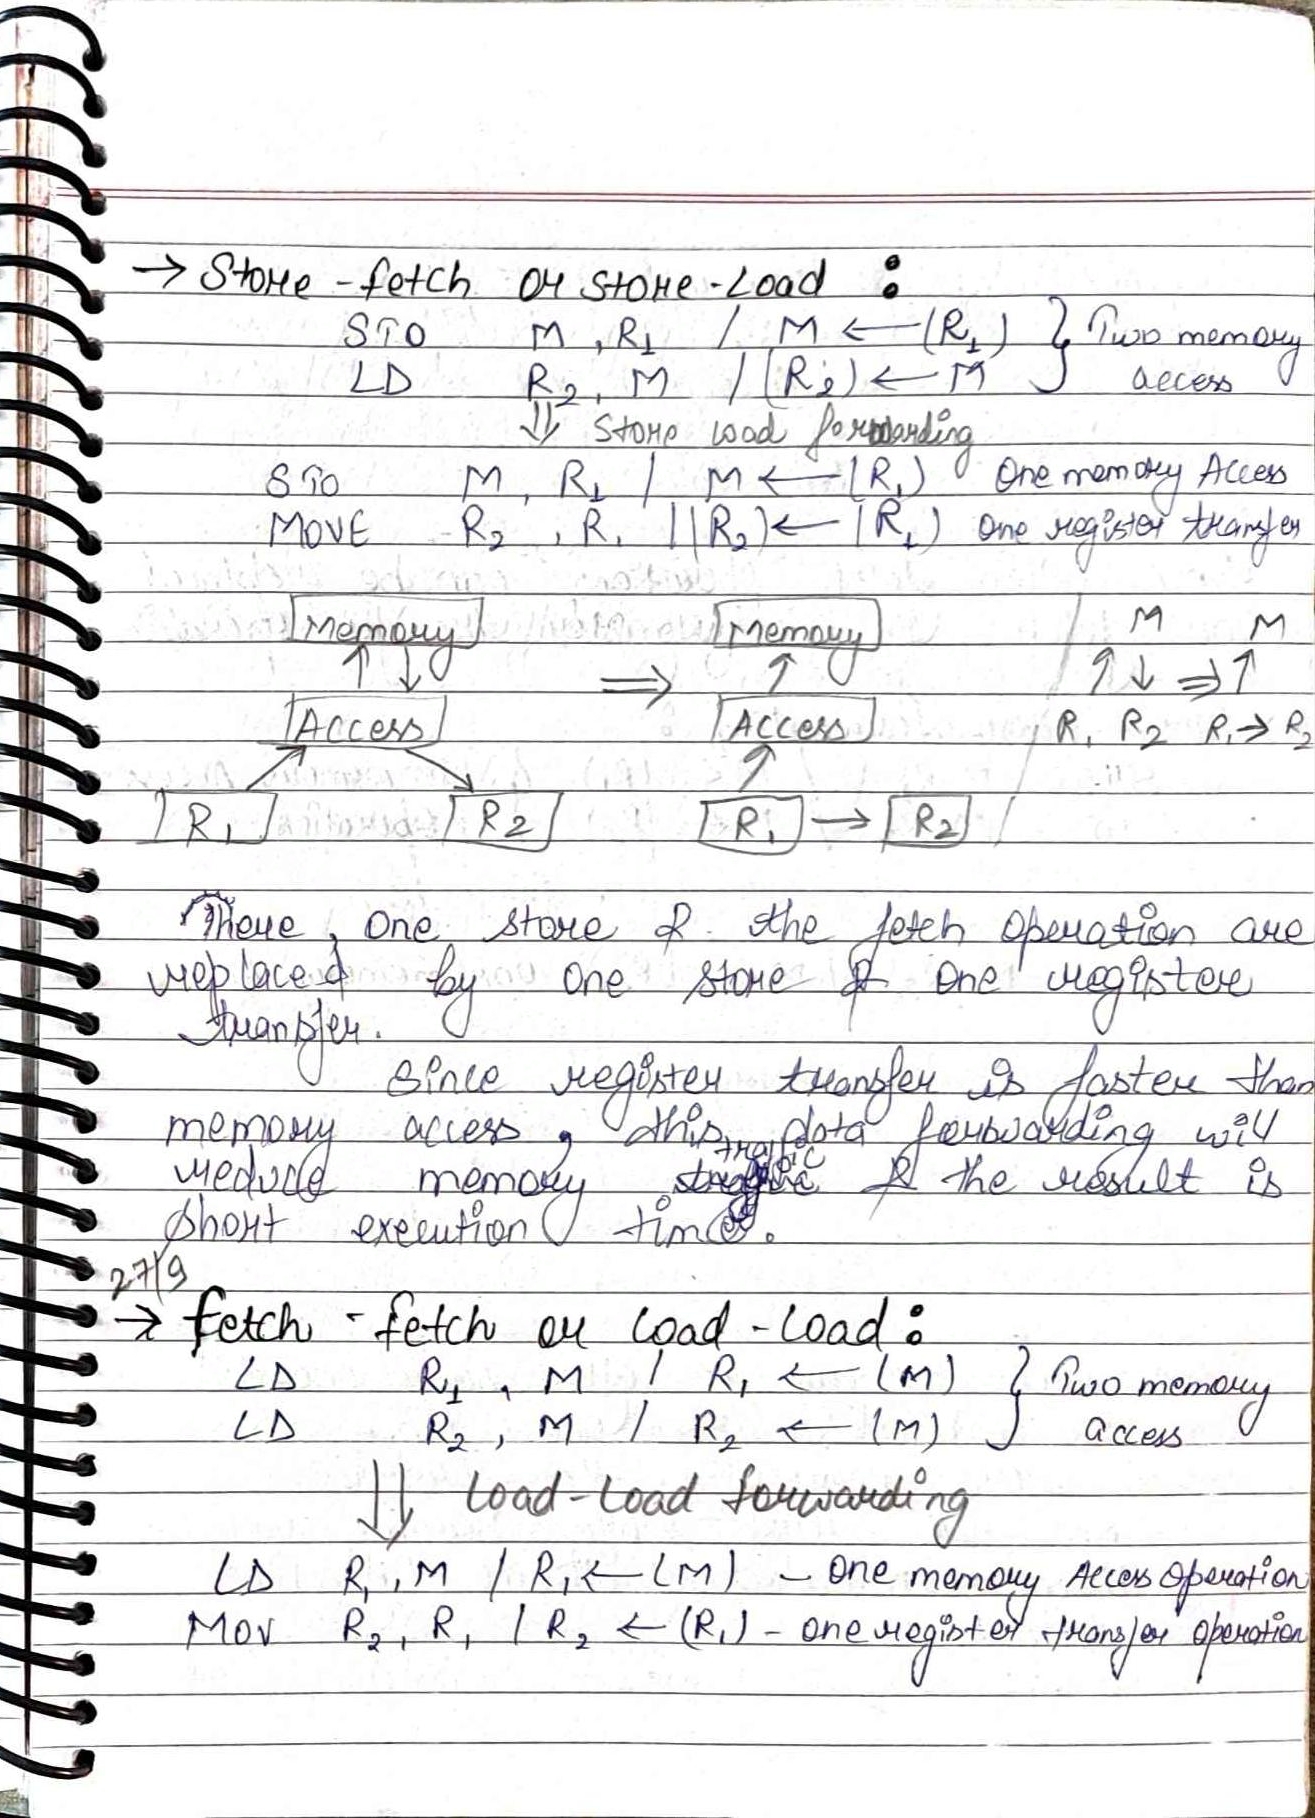 → Store - fetch or store - Load :
STO M , R1 / M ← (R1) } Two memory
LD R2 , M / (R2) ← M access
⇓ Store Load forwarding
STO M , R1 / M ← (R1) One memory Access
MOVE R2 , R1 / (R2) ← (R1) one register transfer
Memory ⇒ Memory M M
↑ ↓ ↑ ↑ ↓ ⇒ ↑
Access Access R1 R2 R1 → R2
R1 R2 R1 → R2
There , one store & the fetch operation are
replaced by one store & one register
transfer.
Since register transfer is faster than
memory access , this data forwarding will
traffic
reduce memory & the result is
short execution time.
27/9
→ fetch - fetch or Load - Load :
LD R1 , M / R1 ← (M) } Two memory
LD R2 , M / R2 ← (M) access
⇓ Load - Load forwarding
LD R1 , M / R1 ← (M) - One memory Access Operation
MOV R2 , R1 / R2 ← (R1) - one register transfer operation